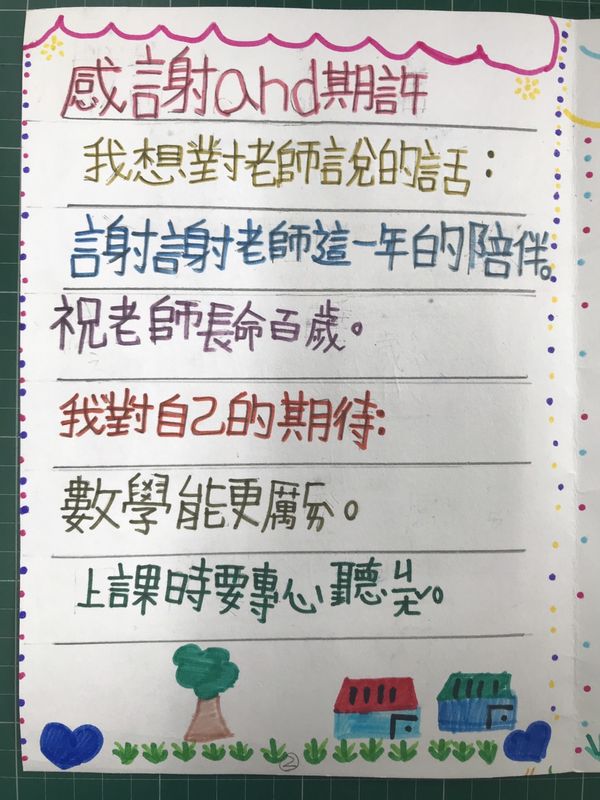 感謝and期許
我想對老師說的話：
謝謝老師這一年的陪伴。
祝老師長命百歲。
我對自己的期待:
數學能更厲。
上課時要專心聽ㄐㄧㄤˇ。
②